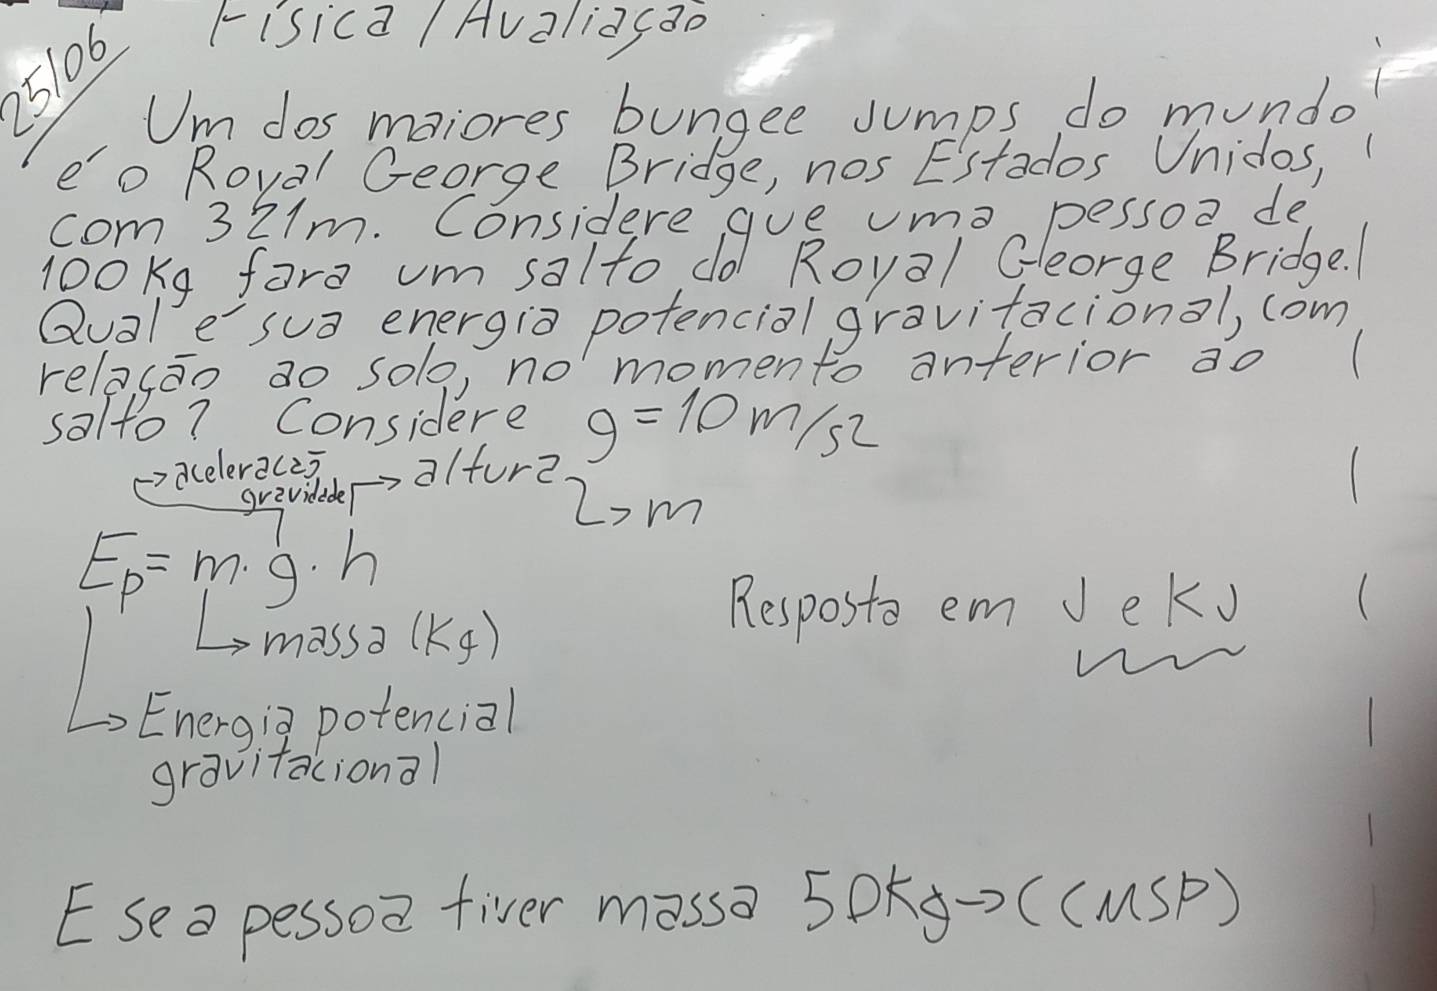 Física / Avaliação
25/06
Um dos maiores bungee Jumps do mundo
é o Royal George Bridge, nos Estados Unidos,
com 321m. Considere que uma pessoa de
100Kg fara um salto do Royal George Bridge.
Qual é sua energia potencial gravitacional, com
relação ao solo, no momento anterior ao
salto? Considere g=10m/s2
→ aceleração → altura
gravidade → m
Ep= m.g.h
Resposta em J e KJ
→ massa (Kg)
→ Energia potencial
gravitacional
E se a pessoa tiver massa 50Kg→((MSP)